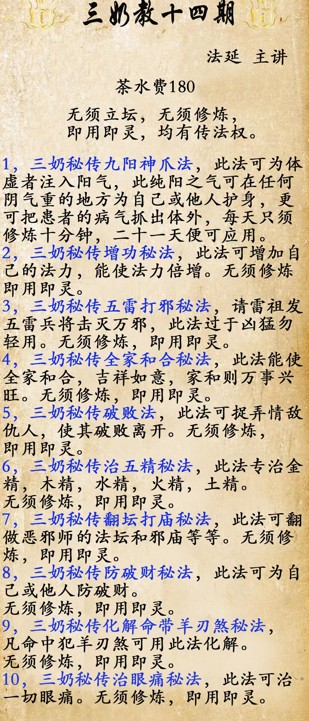 三奶教十四期
法延 主讲
茶水费180
无须立坛，无须修炼，
即用即灵，均有传法权。
1，三奶秘传九阳神爪法，此法可为体
虚者注入阳气，此纯阳之气可在任何
阴气重的地方为自己或他人护身，更
可把患者的病气抓出体外，每天只须
修炼十分钟，二十一天便可应用。
2，三奶秘传增功秘法，此法可增加自
己的法力，能使法力倍增。无须修炼
即用即灵。
3，三奶秘传五雷打邪秘法，请雷祖发
五雷兵将击灭万邪，此法过于凶猛勿
轻用。无须修炼，即用即灵。
4，三奶秘传全家和合秘法，此法能使
全家和合，吉祥如意，家和则万事兴
旺。无须修炼，即用即灵。
5，三奶秘传破败法，此法可捉弄情敌
仇人，使其破败离开。无须修炼，
即用即灵。
6，三奶秘传治五精秘法，此法专治金
精，木精，水精，火精，土精。
无须修炼，即用即灵。
7，三奶秘传翻坛打庙秘法，此法可翻
做恶邪师的法坛和邪庙等等。无须修
炼，即用即灵。
8，三奶秘传防破财秘法，此法可为自
己或他人防破财。
无须修炼，即用即灵。
9，三奶秘传化解命带羊刃煞秘法，
凡命中犯羊刃煞可用此法化解。
无须修炼，即用即灵。
10，三奶秘传治眼痛秘法，此法可治
一切眼痛。无须修炼，即用即灵。